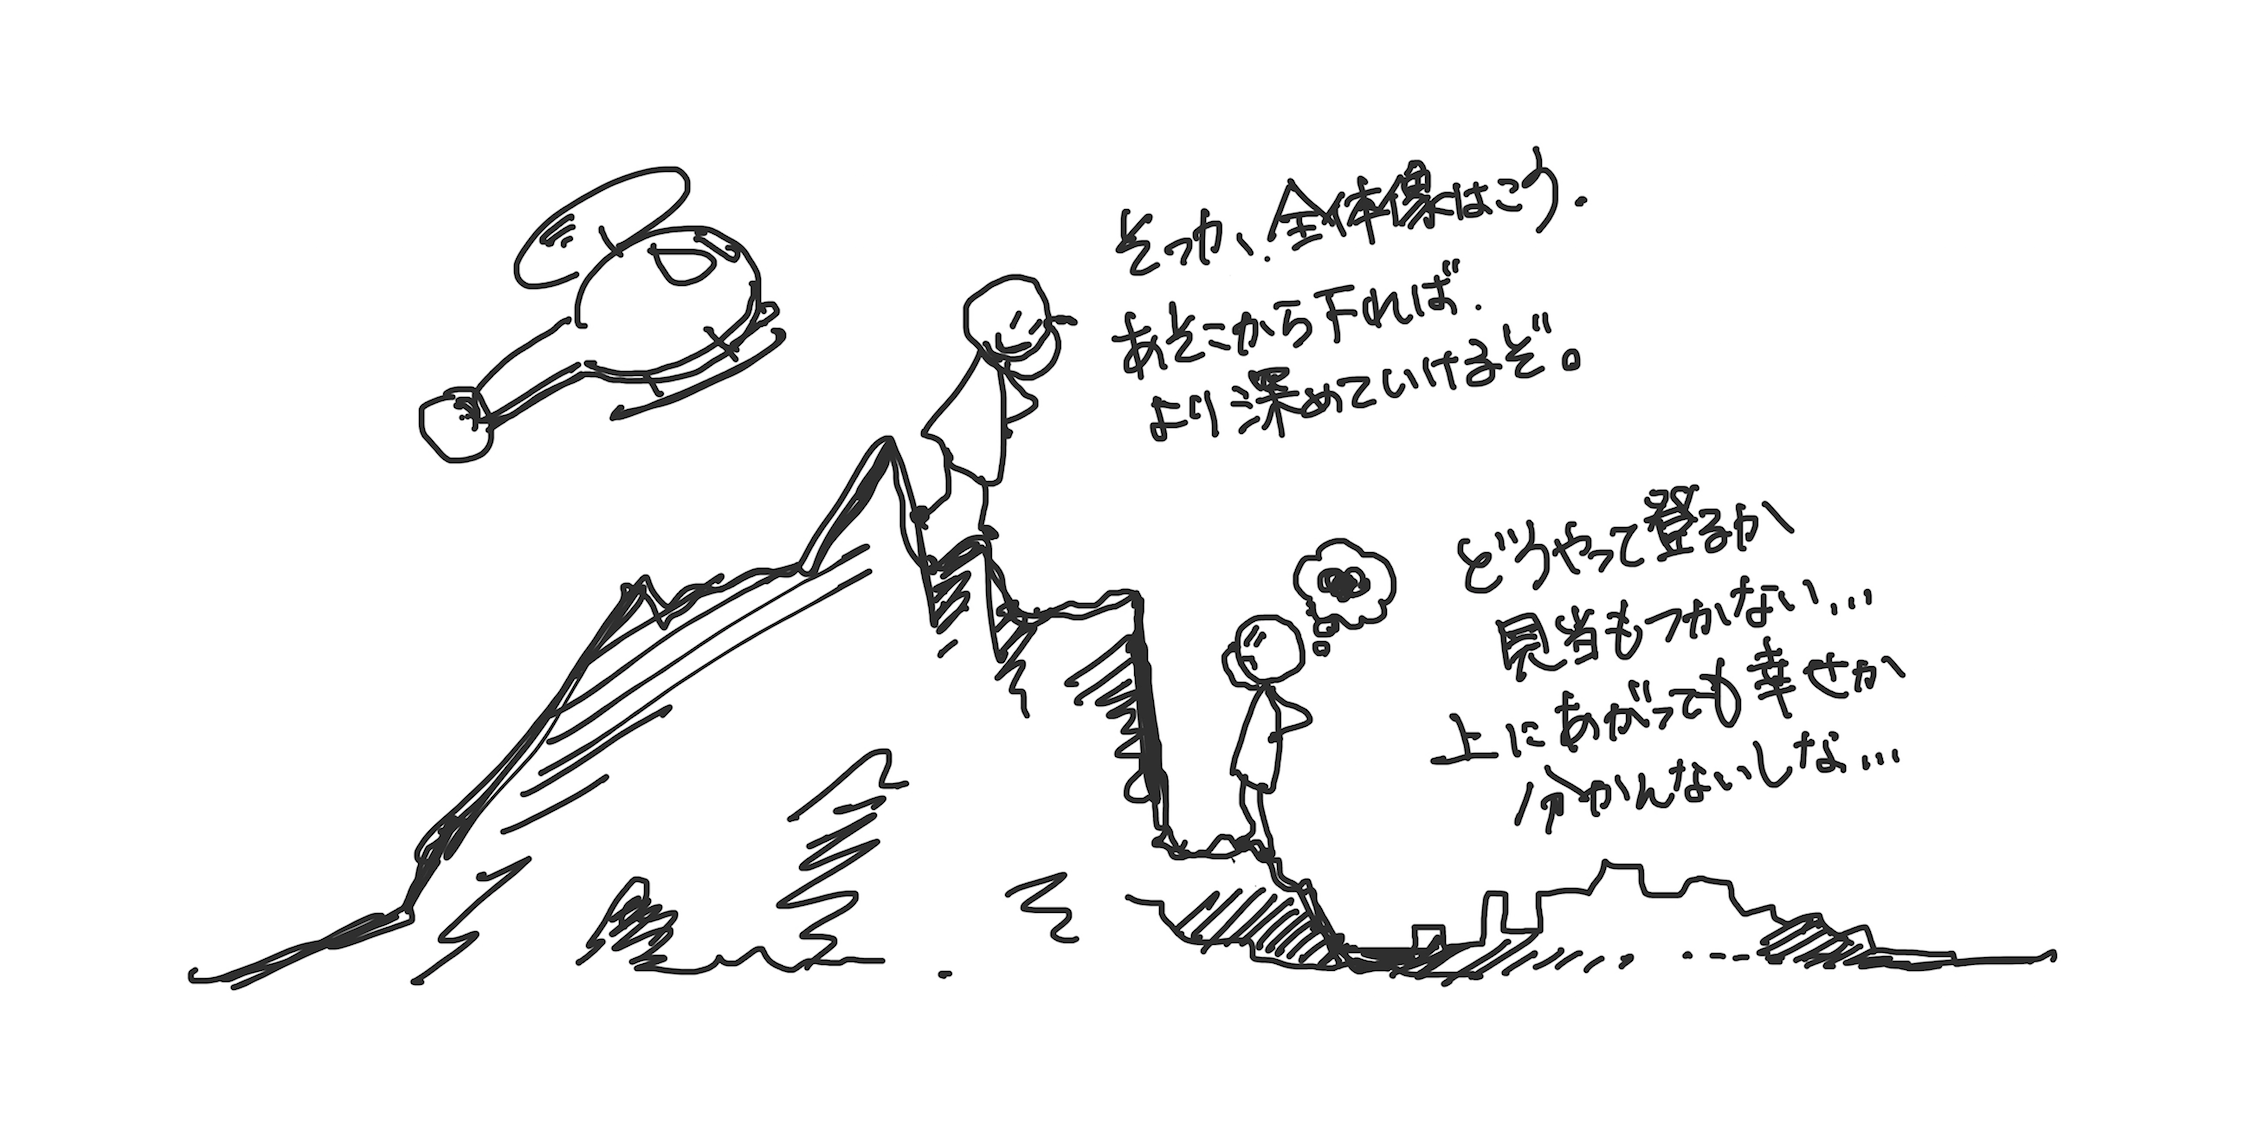 そっか、全体像はこう.
あそこから下れば.
より深めていけるぞ。
どうやって登るか
見当もつかない...
上にあがっても幸せか
分かんないしな...